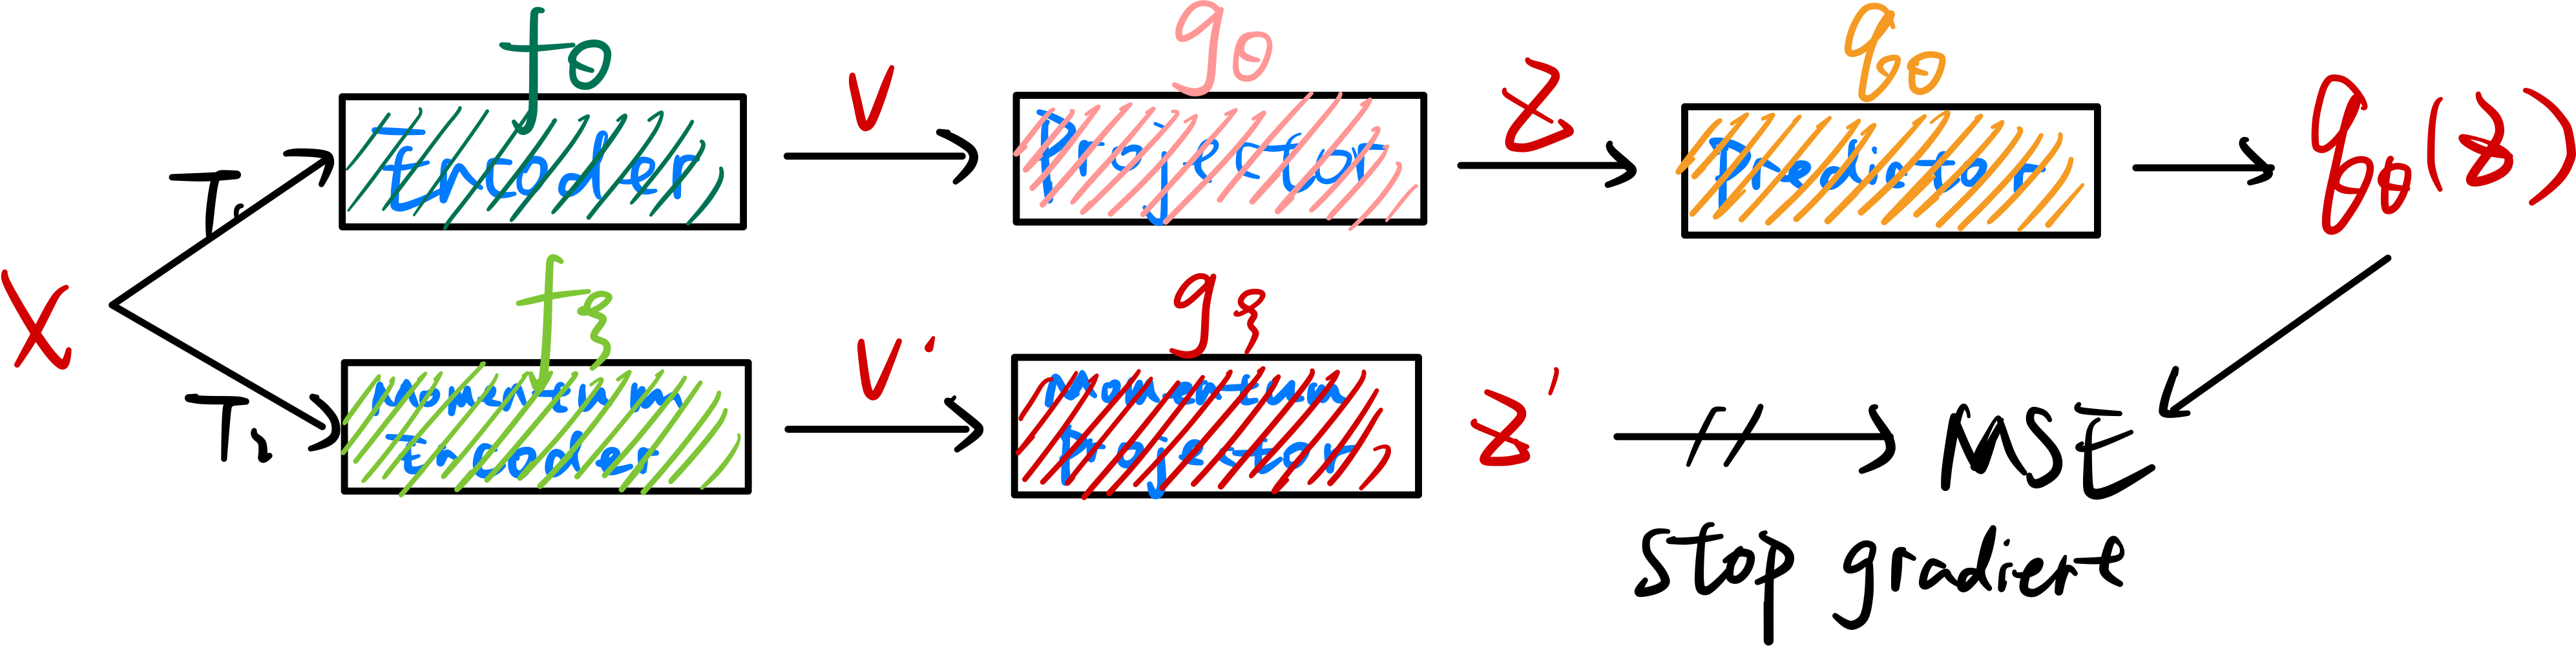 fθ
gθ
qθ
T₁
Encoder
V
Projector
Z
Predictor
qθ(z)
X
fξ
gξ
T₂
Momentum
Encoder
V'
Momentum
Projector
Z'
MSE
stop gradient